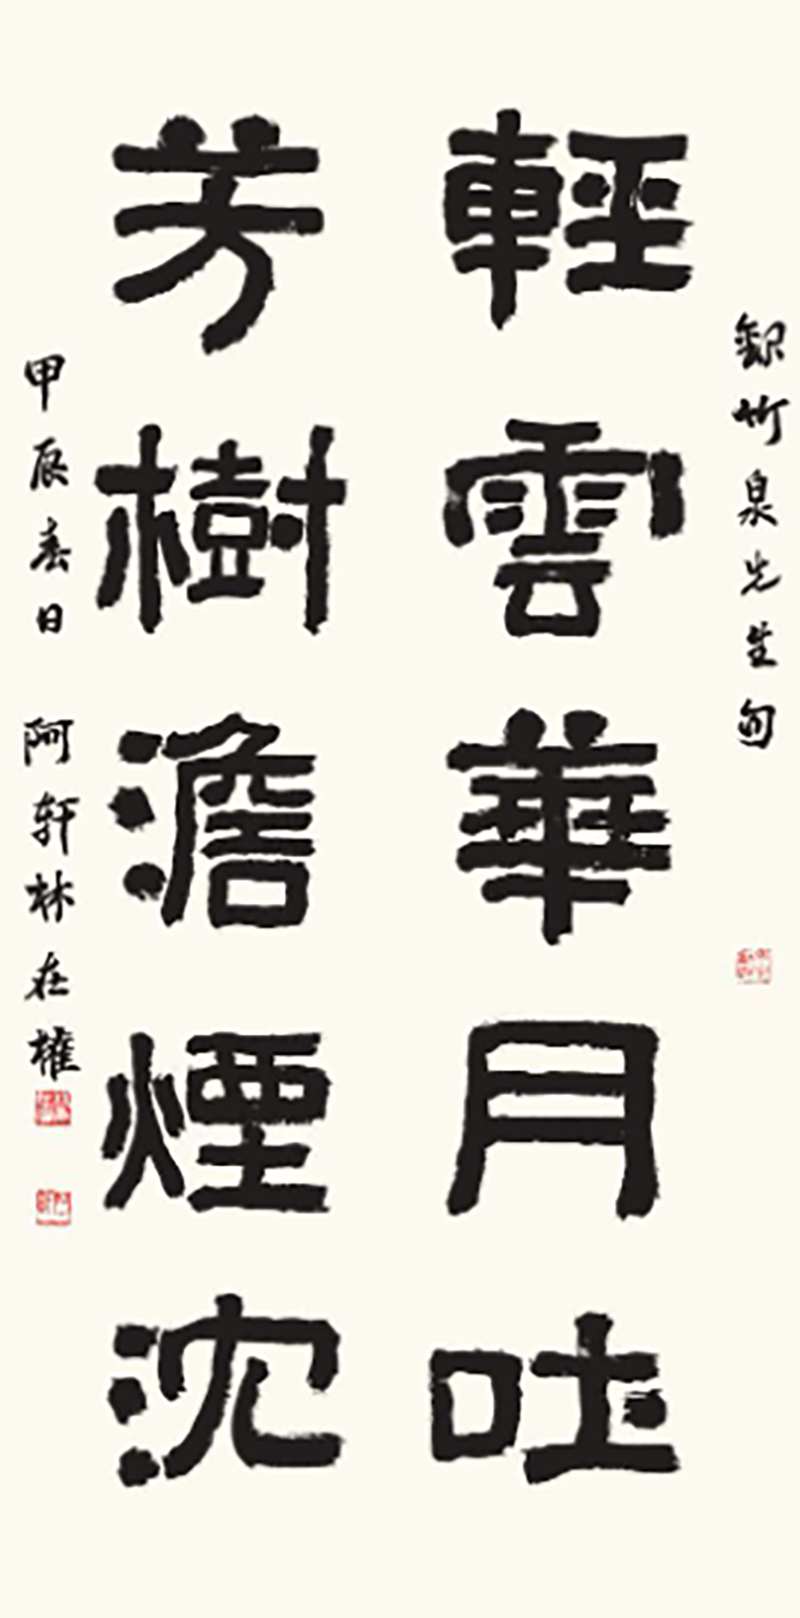 錄竹泉先生句
輕雲華月吐
芳樹澹煙沈
甲辰春日 阿轩林在權